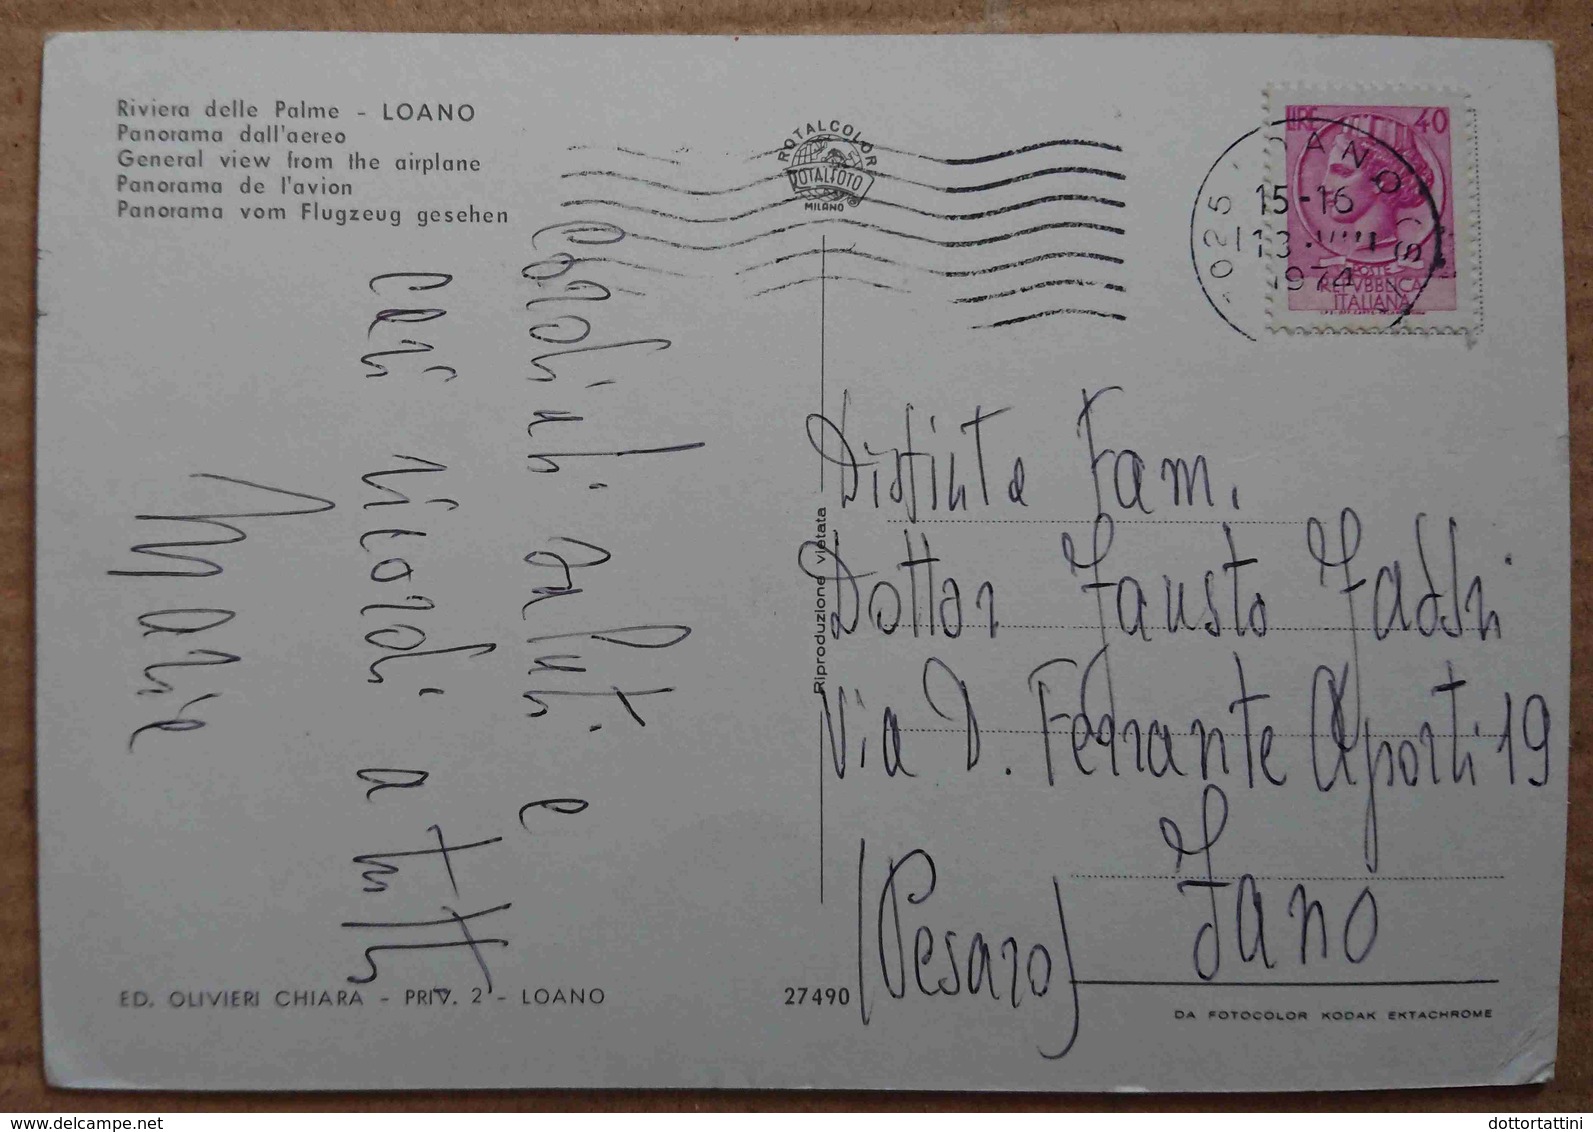 Riviera delle Palme - LOANO
Panorama dall'aereo
General view from the airplane
Panorama de l'avion
Panorama vom Flugzeug gesehen
ROTALCOLOR
ROTALFOTO
MILANO
LIRE 40
POSTE
REPVBBLICA
ITALIANA
15-16
1974
Cordiali saluti e
cari ricordi a tutti
Maria
Riproduzione vietata
Distinta Fam.
Dottor Fausto
Via D. Ferrante Aporti 19
Fano
(Pesaro)
ED. OLIVIERI CHIARA - PRIV. 2 - LOANO
27490
DA FOTOCOLOR KODAK EKTACHROME
dottortattini